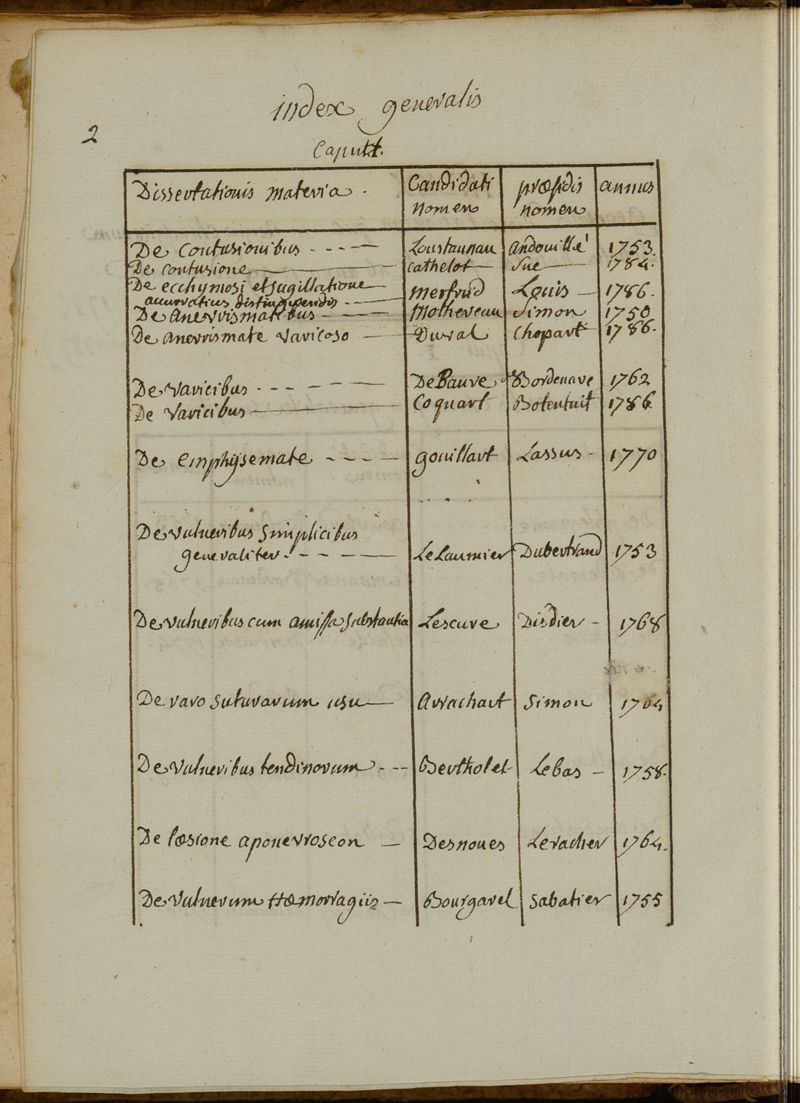 index generalis
2
Caput 1.
Dissertationis materia. Candidati nomen præsidis nomen annus
De Contusionibus Loustaunau andouillé 1753.
De contusione cathelot Sue 1784.
De ecchymosi et sugillatione
accuratius distinguendis Merfrid Louis 1786.
De Anevrismatibus Motherveau Simon 1750
De anevrismate varicoso Duval Chopart 1786.
De Varicibus De Bauve Bordenave 1762
De Varicibus Coquart Botentuit 1786
De emphysemate gouillart Lassus 1770
De Vulneribus Simplicibus
generaliter Le Laumier Dubertrand 1753
De Vulneribus cum amissa substantia Lescure Didier 1768
De raro suturarum usu Arrachart Simon 1764
De Vulneribus tendinorum Bertholet Lebas 1758.
De læsione aponevroseon Desnoues Levacher 1764.
De Vulnerum Hæmorragiis Bourgarel Sabatier 1755